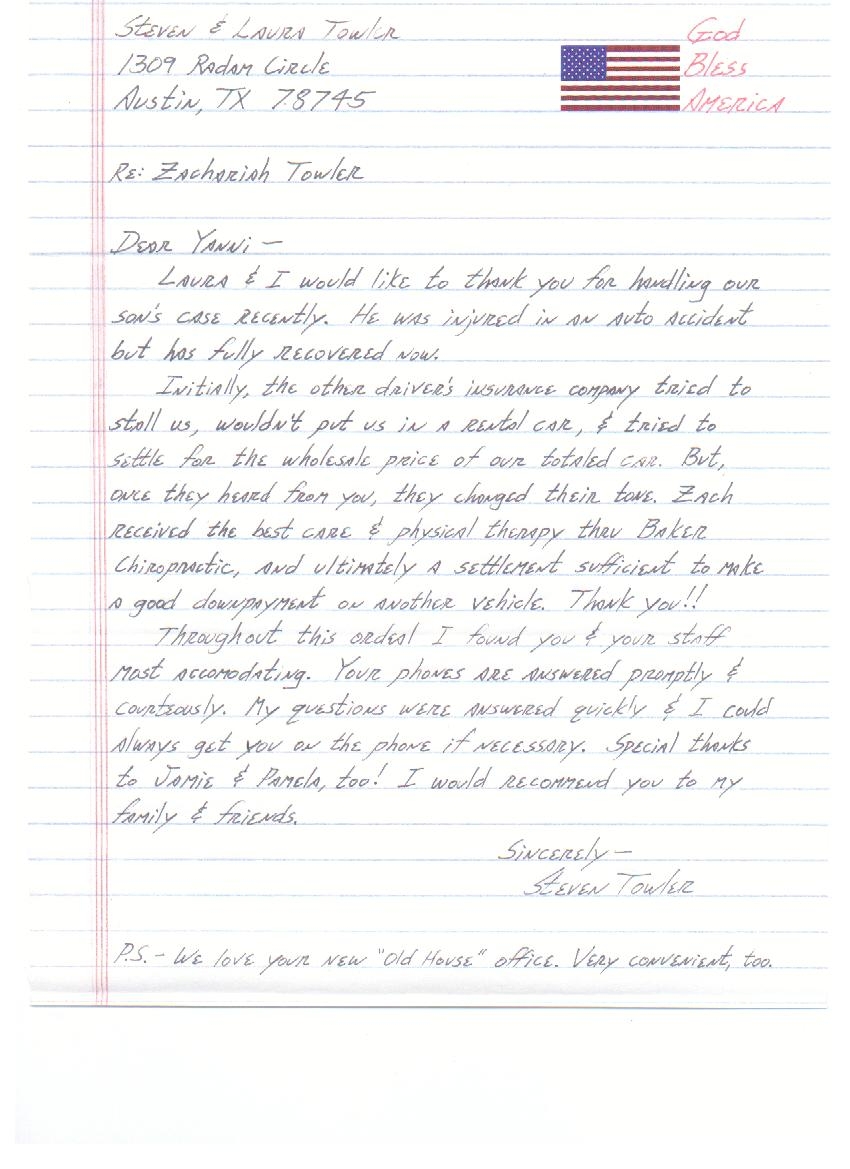 Steven & Laura Towler
God
1309 Radam Circle
Bless
Austin, TX 78745
America
Re: Zachariah Towler
Dear Yanni —
Laura & I would like to thank you for handling our
son's case recently. He was injured in an auto accident
but has fully recovered now.
Initially, the other driver's insurance company tried to
stall us, wouldn't put us in a rental car, & tried to
settle for the wholesale price of our totaled car. But,
once they heard from you, they changed their tone. Zach
received the best care & physical therapy thru Baker
Chiropractic, and ultimately a settlement sufficient to make
a good downpayment on another vehicle. Thank you!!
Throughout this ordeal I found you & your staff
most accomodating. Your phones are answered promptly &
courteously. My questions were answered quickly & I could
always get you on the phone if necessary. Special thanks
to Jamie & Pamela, too! I would recommend you to my
family & friends.
Sincerely —
Steven Towler
P.S. - We love your new "Old House" office. Very convenient, too.